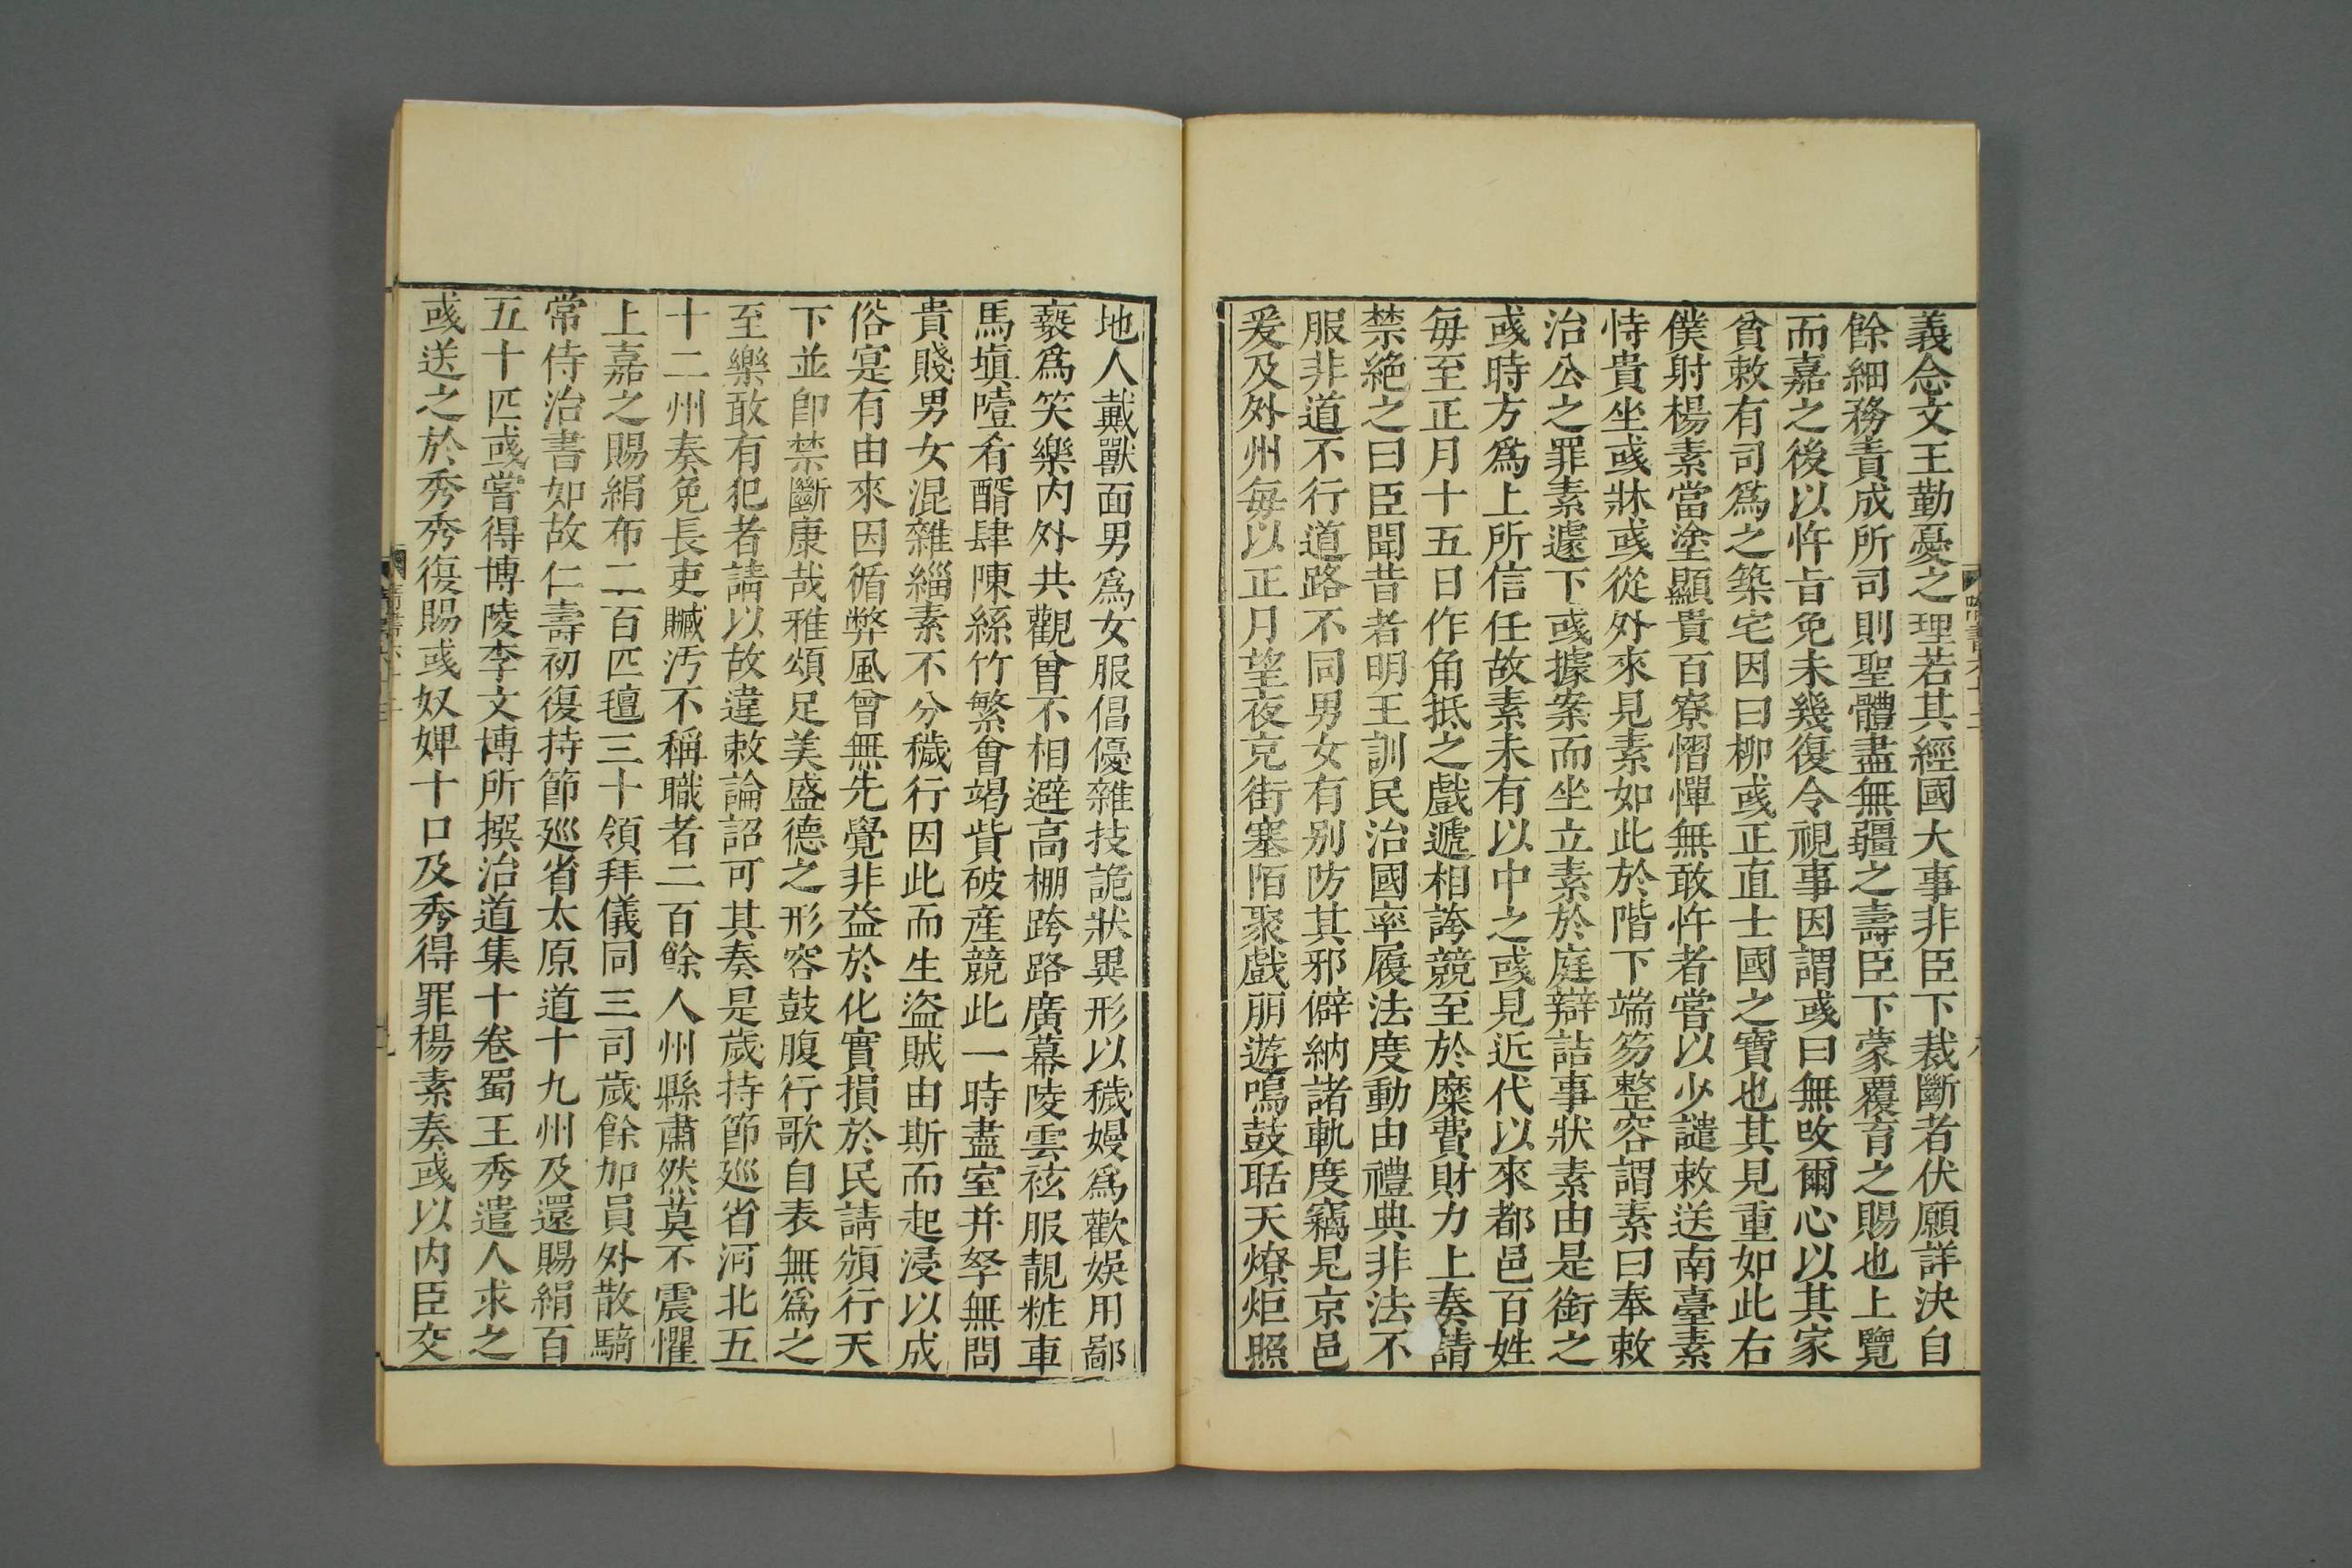 義念文王勤憂之理若其經國大事非臣下裁斷者伏願詳決自
餘細務責成所司則聖體盡無疆之壽臣下蒙覆育之賜也上覽
而嘉之後以忤旨免未幾復令視事因謂彧曰無改爾心以其家
貧敕有司爲之築宅因曰柳彧正直士國之寶也其見重如此右
僕射楊素當塗顯貴百寮慴憚無敢忤者嘗以少譴敕送南臺素
恃貴坐彧牀彧從外來見素如此於階下端笏整容謂素曰奉敕
治公之罪素遽下彧據案而坐立素於庭辯詰事狀素由是銜之
彧時方爲上所信任故素未有以中之彧見近代以來都邑百姓
每至正月十五日作角抵之戲遞相誇競至於糜費財力上奏請
禁絶之曰臣聞昔者明王訓民治國率履法度動由禮典非法不
服非道不行道路不同男女有别防其邪僻納諸軌度竊見京邑
爰及外州每以正月望夜充街塞陌聚戲朋遊鳴鼓聒天燎炬照
地人戴獸面男爲女服倡優雜技詭狀異形以穢嫚爲歡娱用鄙
褻爲笑樂内外共觀曾不相避高棚跨路廣幕陵雲袨服靚粧車
馬塡噎肴醑肆陳絲竹繁會竭貲破産競此一時盡室并孥無問
貴賤男女混雜緇素不分穢行因此而生盜賊由斯而起浸以成
俗寔有由來因循弊風曾無先覺非益於化實損於民請頒行天
下並卽禁斷康哉雅頌足美盛德之形容鼓腹行歌自表無爲之
至樂敢有犯者請以故違敕論詔可其奏是歲持節巡省河北五
十二州奏免長吏贓汚不稱職者二百餘人州縣肅然莫不震懼
上嘉之賜絹布二百匹氊三十領拜儀同三司歲餘加員外散騎
常侍治書如故仁壽初復持節巡省太原道十九州及還賜絹百
五十匹彧嘗得博陵李文博所撰治道集十卷蜀王秀遣人求之
彧送之於秀秀復賜彧奴婢十口及秀得罪楊素奏彧以内臣交